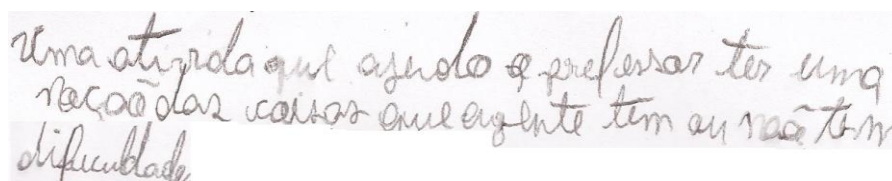 Uma ativida que ajudo o professor ter uma
noção das coisas que agente tem ou não tem
dificuldade